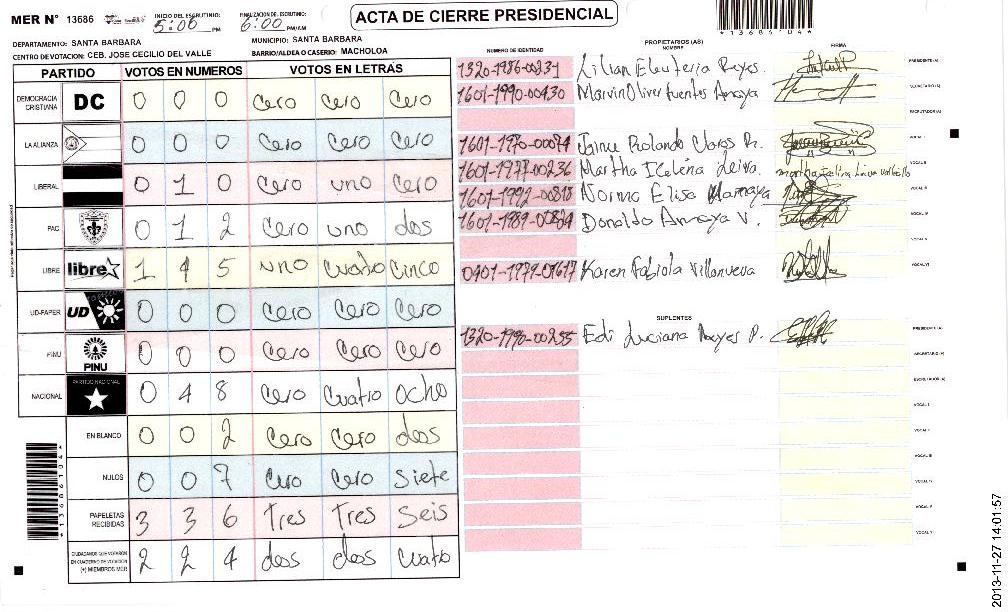 MER N° 13686 INICIO DEL ESCRUTINIO: 5:00 PM FINALIZACION DEL ESCRUTINIO: 6:00 PM/AM ACTA DE CIERRE PRESIDENCIAL
*13686104*
DEPARTAMENTO: SANTA BARBARA MUNICIPIO: SANTA BARBARA
CENTRO DE VOTACION: CEB. JOSE CECILIO DEL VALLE BARRIO/ALDEA O CASERIO: MACHOLOA
PARTIDO VOTOS EN NUMEROS VOTOS EN LETRAS
DEMOCRACIA CRISTIANA DC 0 0 0 cero cero cero
LA ALIANZA 0 0 0 cero cero cero
LIBERAL 0 1 0 cero uno cero
PAC 0 1 2 cero uno dos
LIBRE libre 1 4 5 uno cuatro cinco
UD-FAPER UD 0 0 0 cero cero cero
PINU PINU 0 0 0 cero cero cero
NACIONAL PARTIDO NACIONAL 0 4 8 cero cuatro ocho
EN BLANCO 0 0 2 cero cero dos
NULOS 0 0 7 cero cero siete
PAPELETAS RECIBIDAS 3 3 6 tres tres seis
CIUDADANOS QUE VOTARON EN CUADERNO DE VOTACIÓN (+) MIEMBROS MER 2 2 4 dos dos cuatro
*13686104*
NUMERO DE IDENTIDAD PROPIETARIOS (AS) NOMBRE FIRMA
1320-1986-00231 Lilian Eleuteria Reyes. PRESIDENTE(A)
1601-1990-00430 Marvin Oliver Fuentes Amaya SECRETARIO(A)
ESCRUTADOR(A)
1601-1970-00074 Jaime Rolando Claros R. VOCAL I
1601-1977-00236 Martha Icelena Leiva. VOCAL II
1601-1992-00818 Norma Elisa Amaya VOCAL III
1601-1989-00824 Donaldo Amaya V. VOCAL IV
VOCAL V
0401-1979-01617 Karen Fabiola Villanueva VOCAL VI
SUPLENTES
1320-1990-00255 Edi Luciana Reyes P. PRESIDENTE(A)
SECRETARIO(A)
ESCRUTADOR(A)
VOCAL I
VOCAL II
VOCAL III
VOCAL IV
VOCAL V
VOCAL VI
2013-11-27 14:01:57